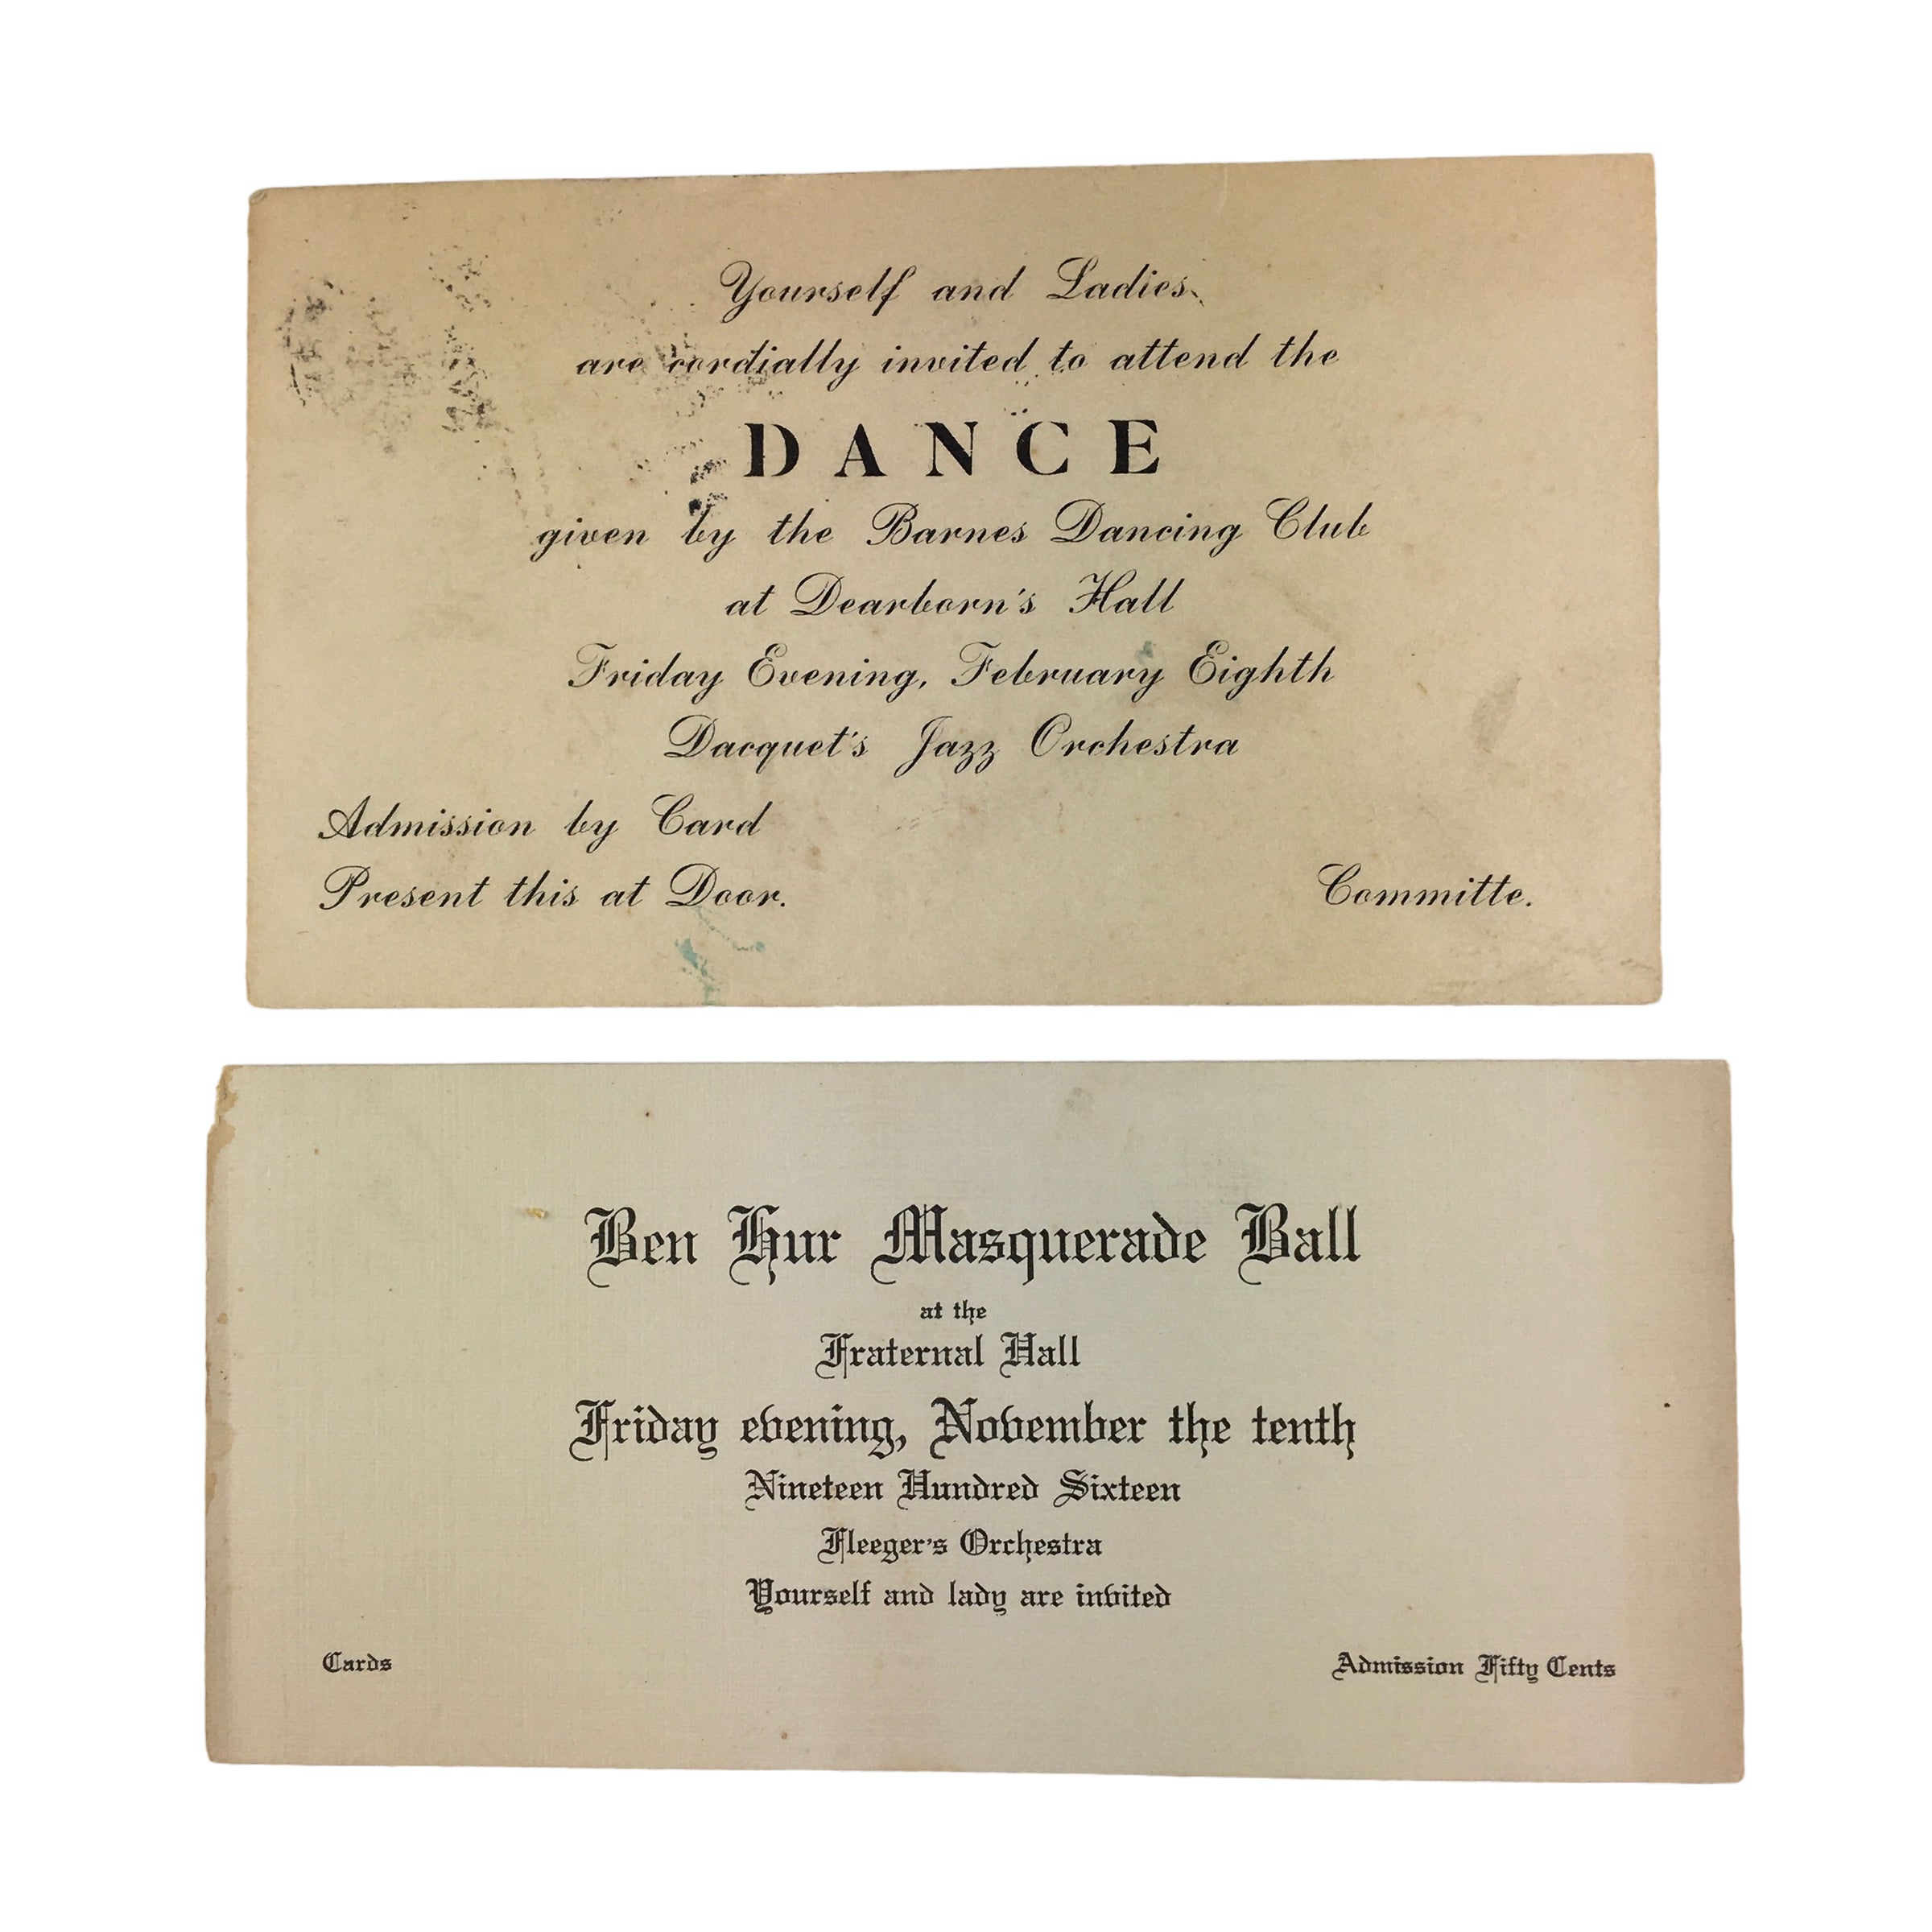 Yourself and Ladies
are cordially invited to attend the
DANCE
given by the Barnes Dancing Club
at Dearborn's Hall
Friday Evening, February Eighth
Dacquet's Jazz Orchestra
Admission by Card
Present this at Door.
Committe.
Ben Hur Masquerade Ball
at the
Fraternal Hall
Friday evening, November the tenth
Nineteen Hundred Sixteen
Fleeger's Orchestra
Yourself and lady are invited
Cards
Admission Fifty Cents